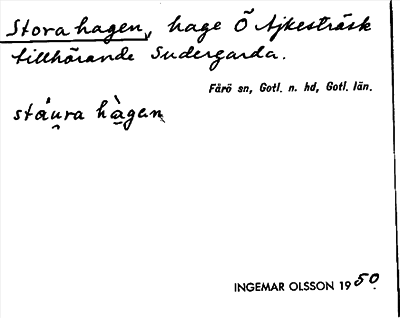 Stora hagen, hage Ö Ajkesträsk
tillhörande Sudergarda.
Fårö sn, Gotl. n. hd, Gotl. län.
stáu̯ra hàgen
INGEMAR OLSSON 1950